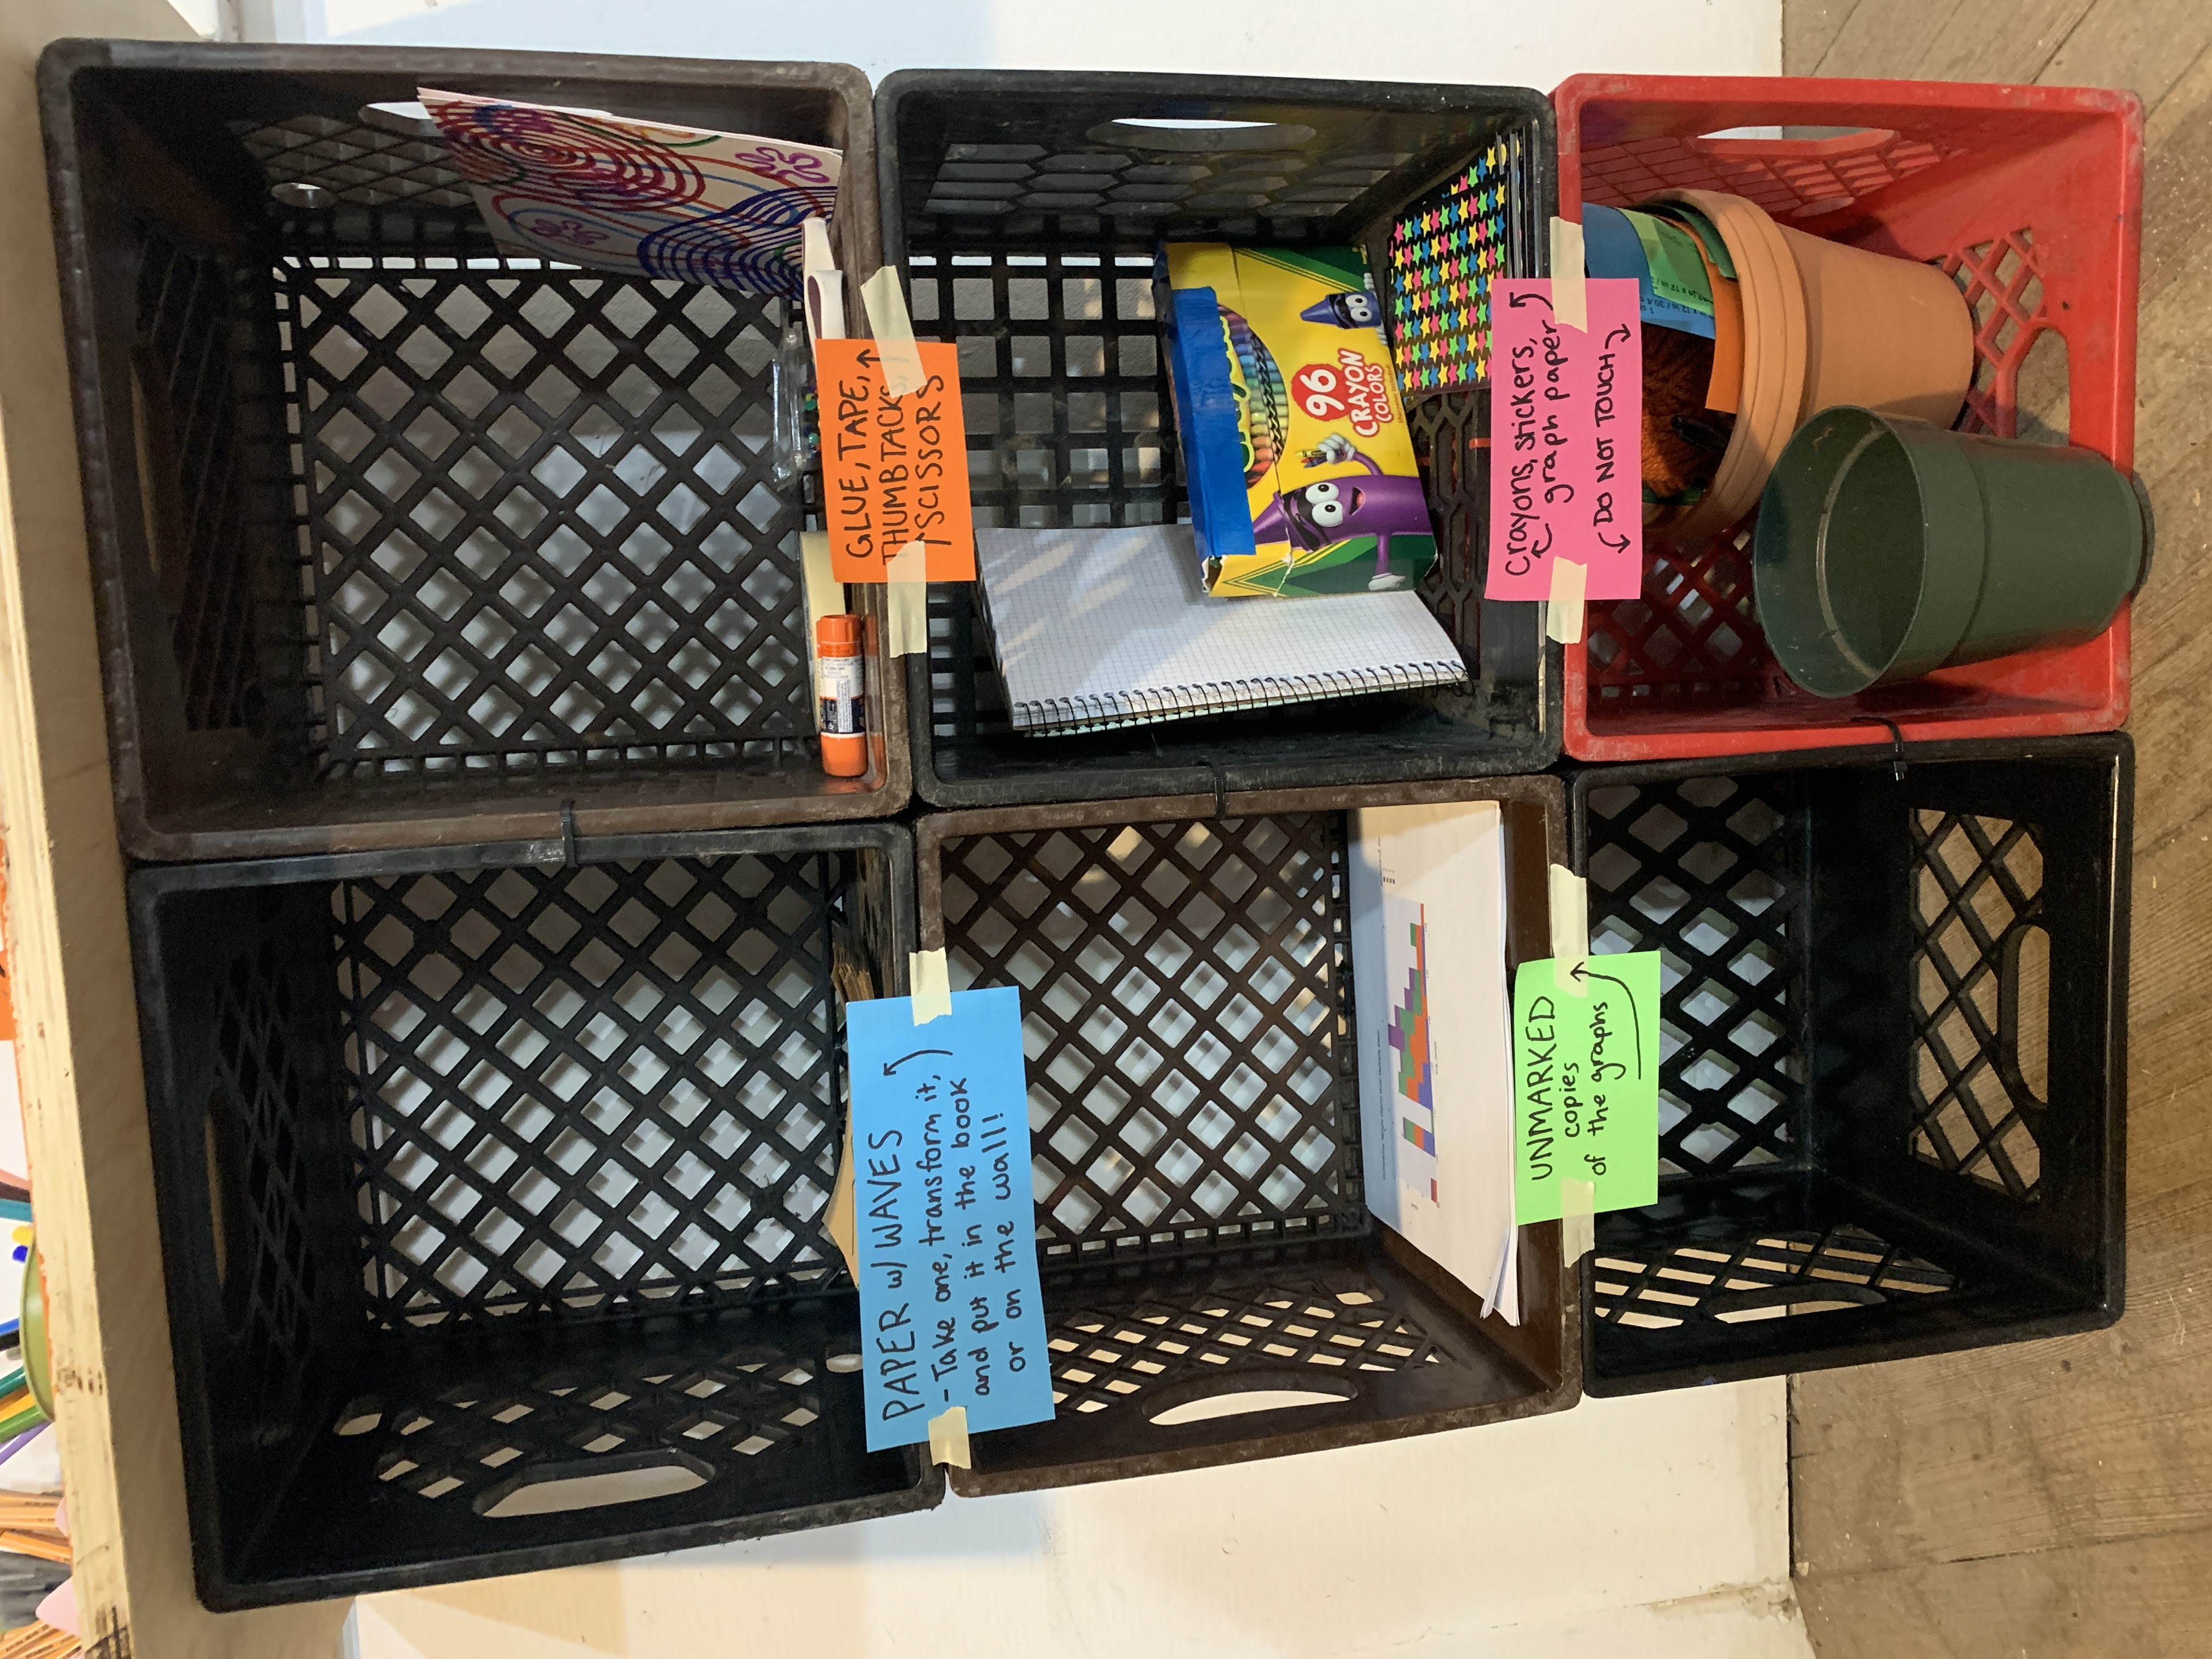 PAPER w/ WAVES
- Take one, transform it,
and put it in the book
or on the wall!
GLUE, TAPE,
THUMBTACKS,
SCISSORS
96
CRAYON
COLORS
Sharpener Included!
UNMARKED
copies
of the graphs
Crayons, stickers,
graph paper
DO NOT TOUCH